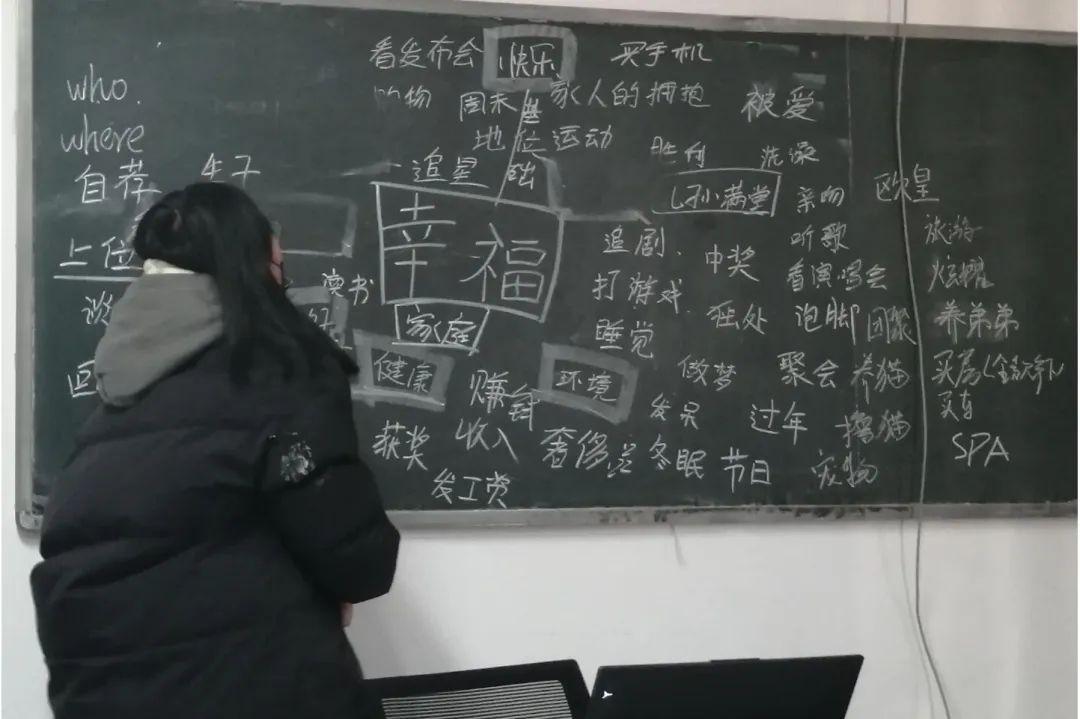 who.
where
自荐
生子
上位
看发布会
快乐
买手机
购物
周末
家人的拥抱
被爱
基础
地位
运动
胜利
洗澡
追星
子孙满堂
亲吻
欧皇
幸福
读书
好
家庭
健康
环境
追剧.
中奖
听歌
旅游
打游戏.
看演唱会
炫耀
睡觉
独处
泡脚
团聚
养弟弟
赚钱
做梦
聚会
养猫
买房(全款
买车
获奖
收入
奢侈品
发呆
过年
撸猫
发工资
冬眠
节日
宠物
SPA